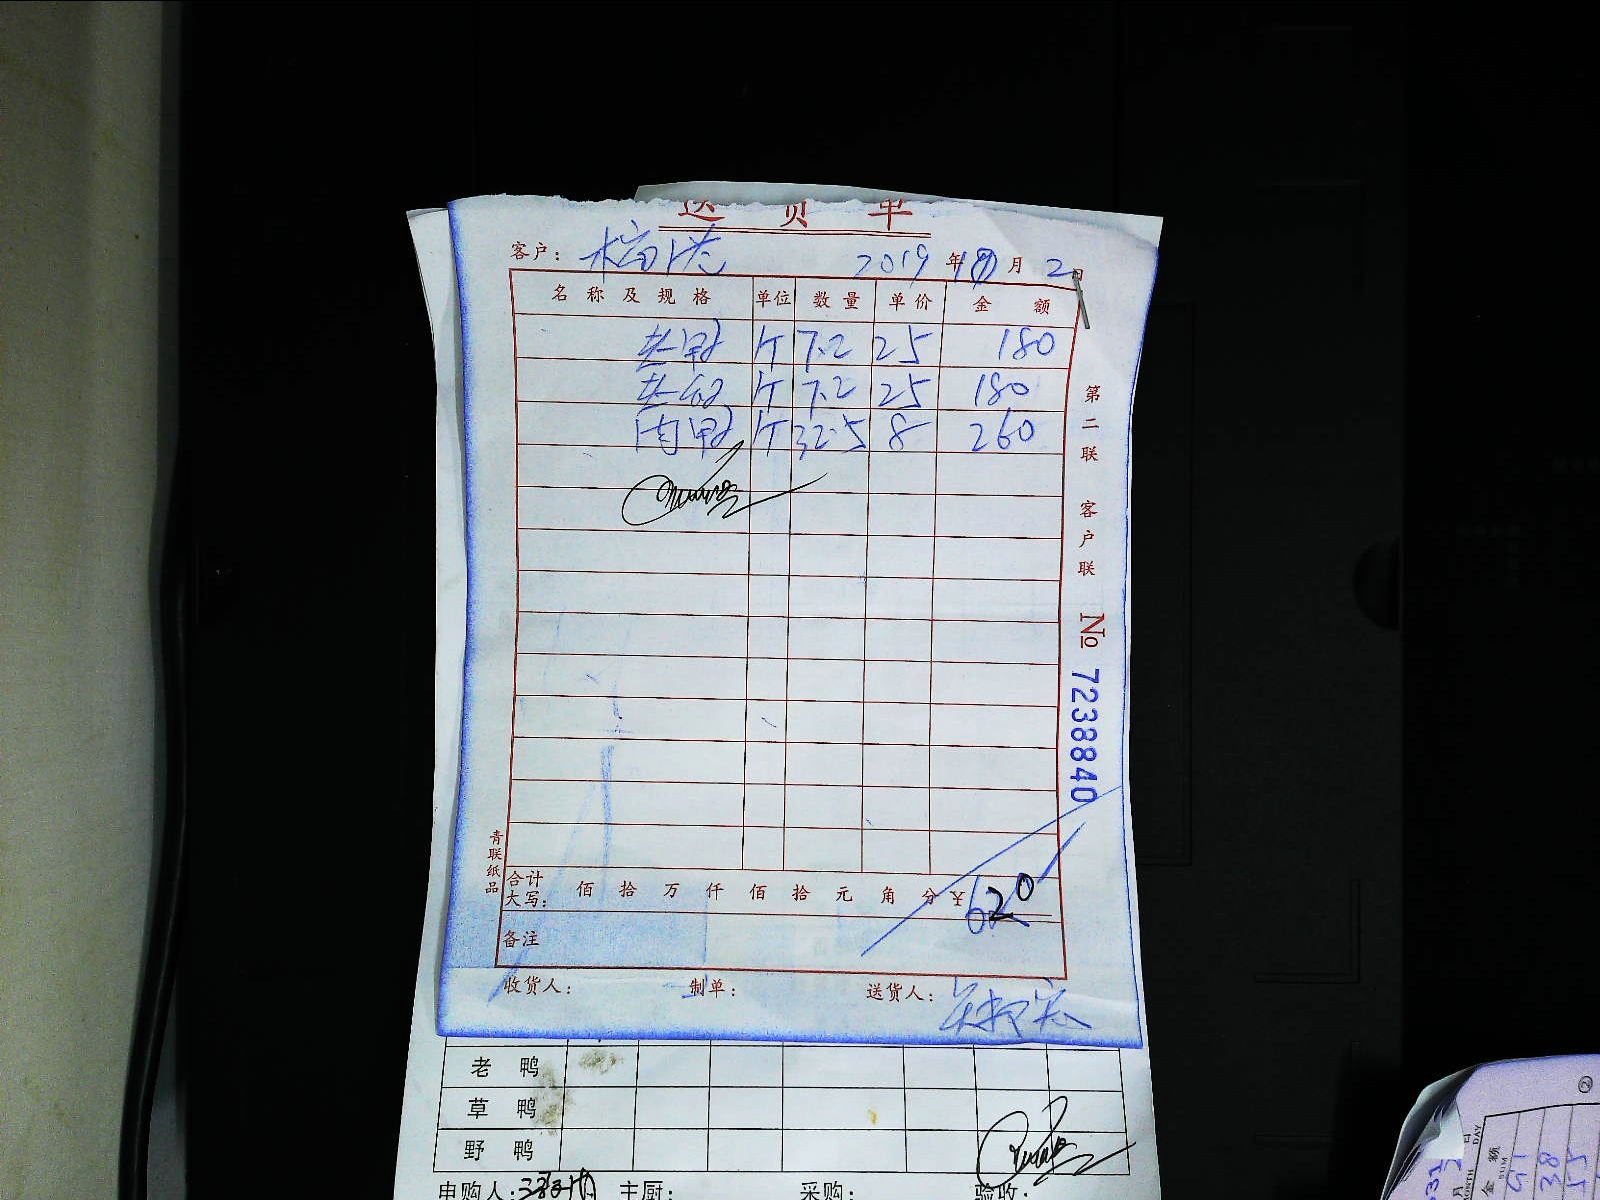 送货单
客户： 2019年10月2日
名称及规格 单位 数量 单价 金额
老鸭 斤 7.2 25 180
老鸽 斤 7.2 25 180
肉鸭 斤 32.5 8 260
第二联 客户联
No 7238840
青联纸品
合计大写： 佰 拾 万 仟 佰 拾 元 角 分 ¥620
备注
收货人： 制单： 送货人：
老鸭
草鸭
野鸭
申购人： 主厨： 采购： 验收：